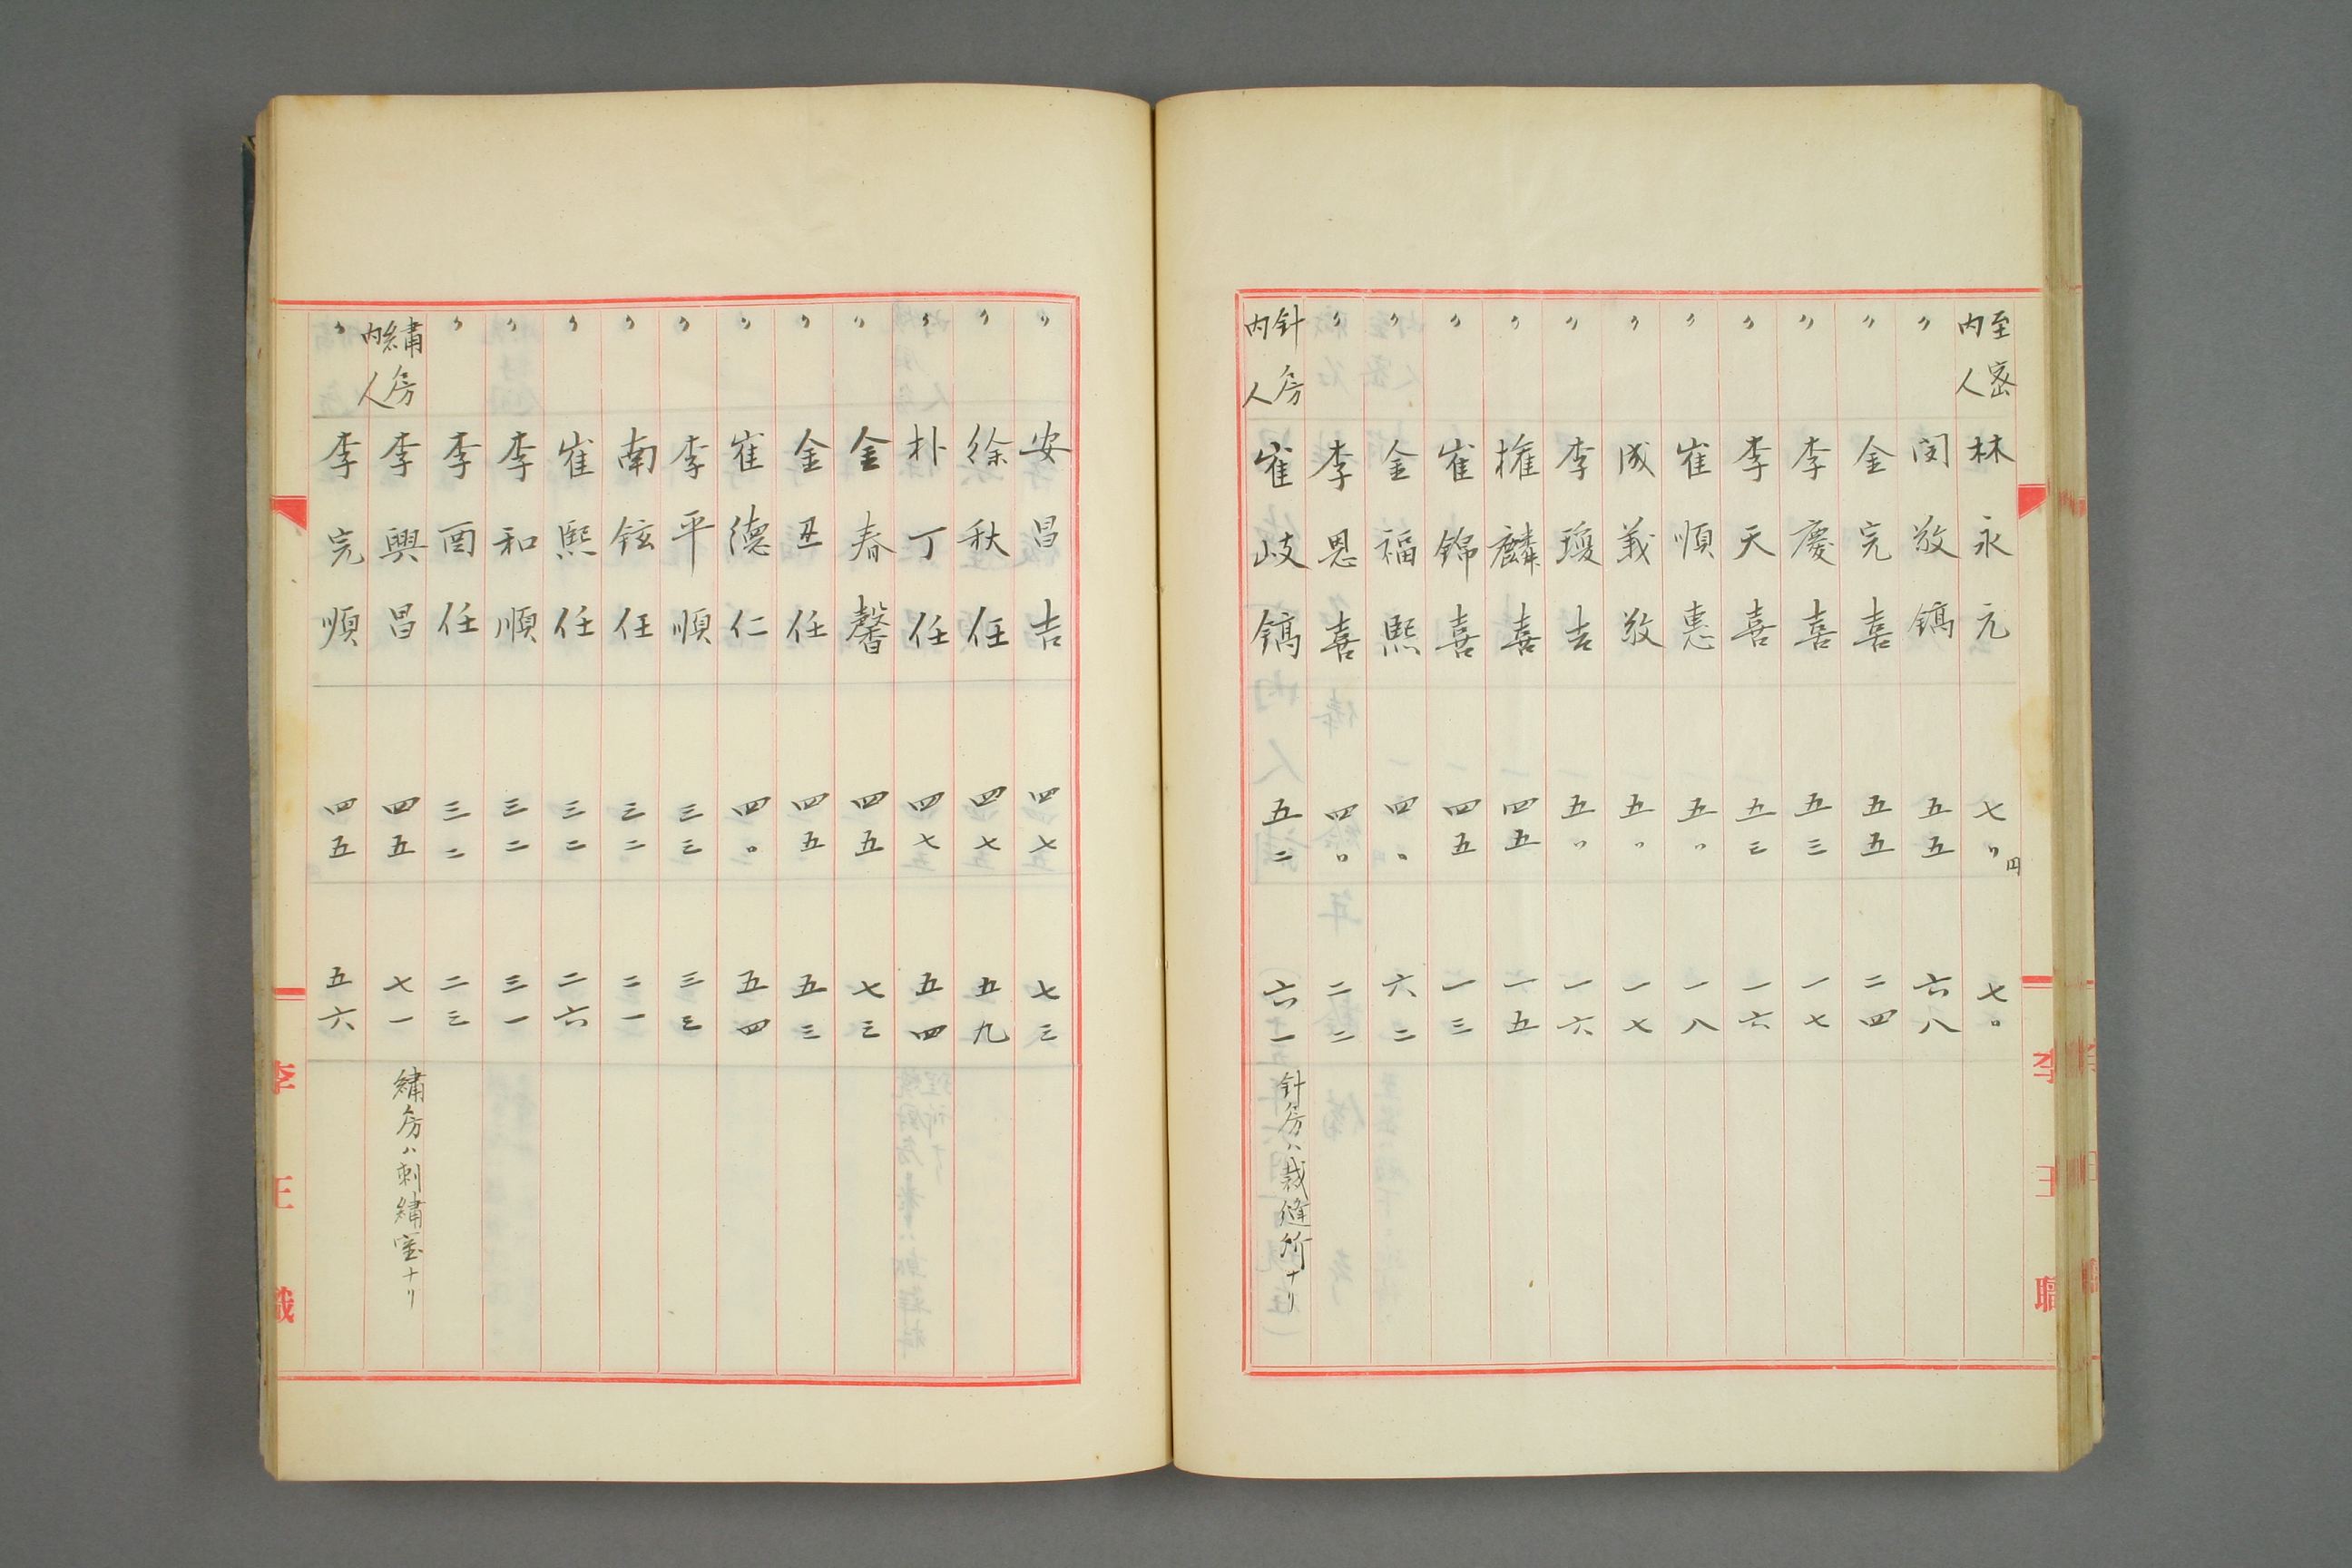 至密内人 林永元 七〇円 七〇
〃 閔敬鎬 五五 六八
〃 金完喜 五五 二四
〃 李慶喜 五三 一七
〃 李天喜 五三 一六
〃 崔順惠 五〇 一八
〃 成義敬 五〇 一七
〃 李瓊吉 五〇 一六
〃 麟喜 四五 一五
〃 崔錦喜 四五 一三
〃 金福熙 四〇 六二
〃 李恩喜 四〇 二二
針房内人 崔岐鎬 五二 六一 針房ハ裁縫所ナリ
李王職
〃 安昌吉 四七 七三
〃 徐秋任 四七 五九
〃 朴丁任 四七 五四
〃 金春馨 四五 七三
〃 金丑任 四五 五三
〃 崔德仁 四〇 五四
〃 李平順 三三 三三
〃 南鉉任 三二 二一
〃 崔熙任 三二 二六
〃 李和順 三二 三一
〃 李酉任 三二 二三
繡房内人 李興昌 四五 七一 繡房ハ刺繡室ナリ
〃 李完順 四五 五六
李王職